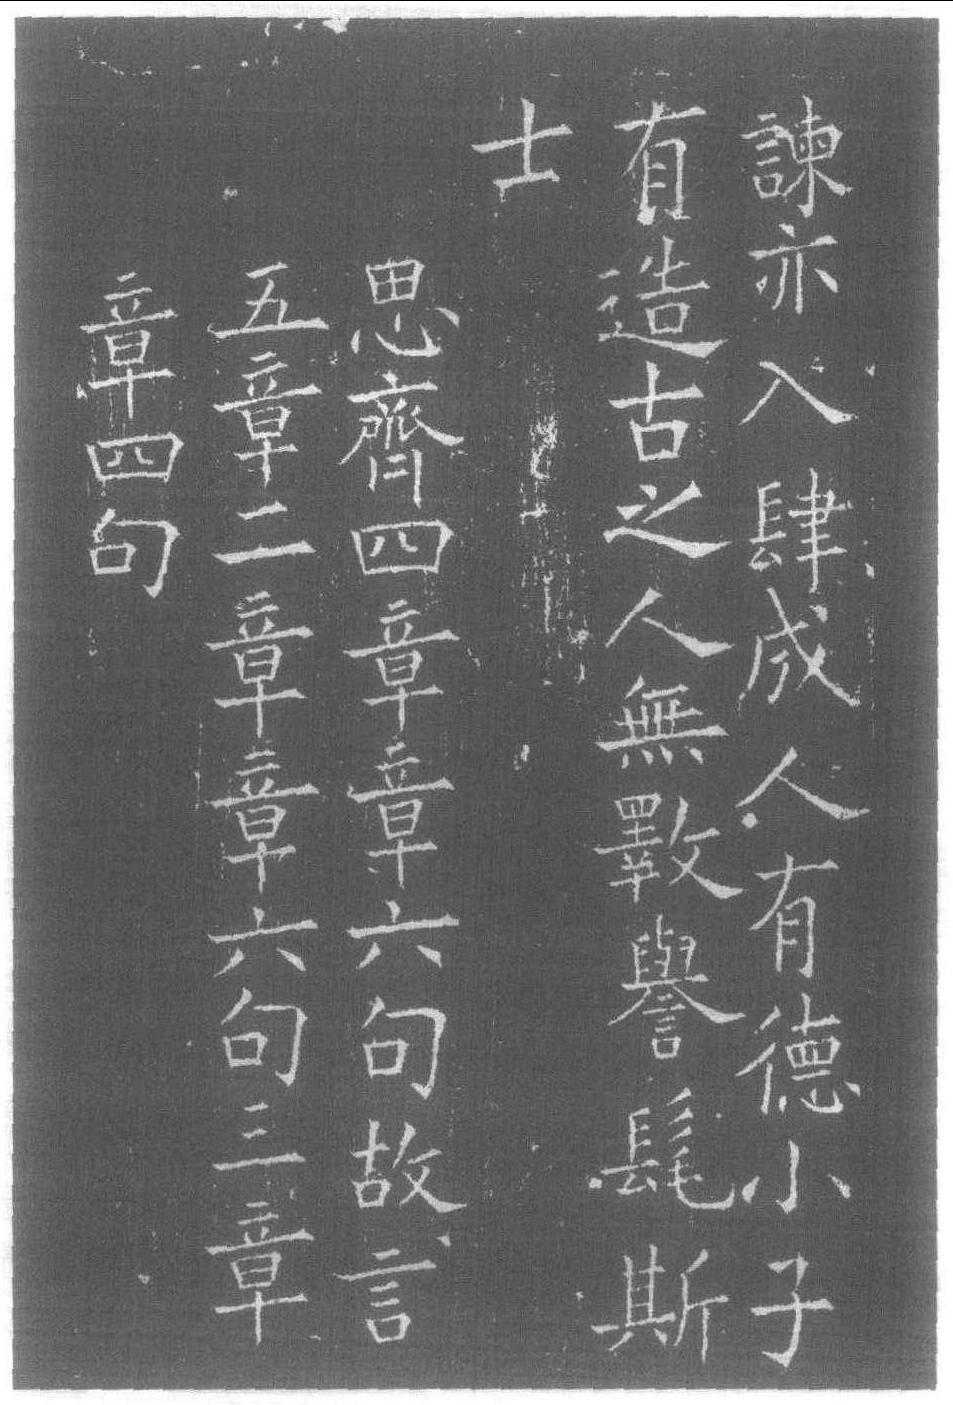 諫亦入肆成人有德小子
有造古之人無斁譽髦斯
士
思齊四章章六句故言
五章二章章六句三章
章四句